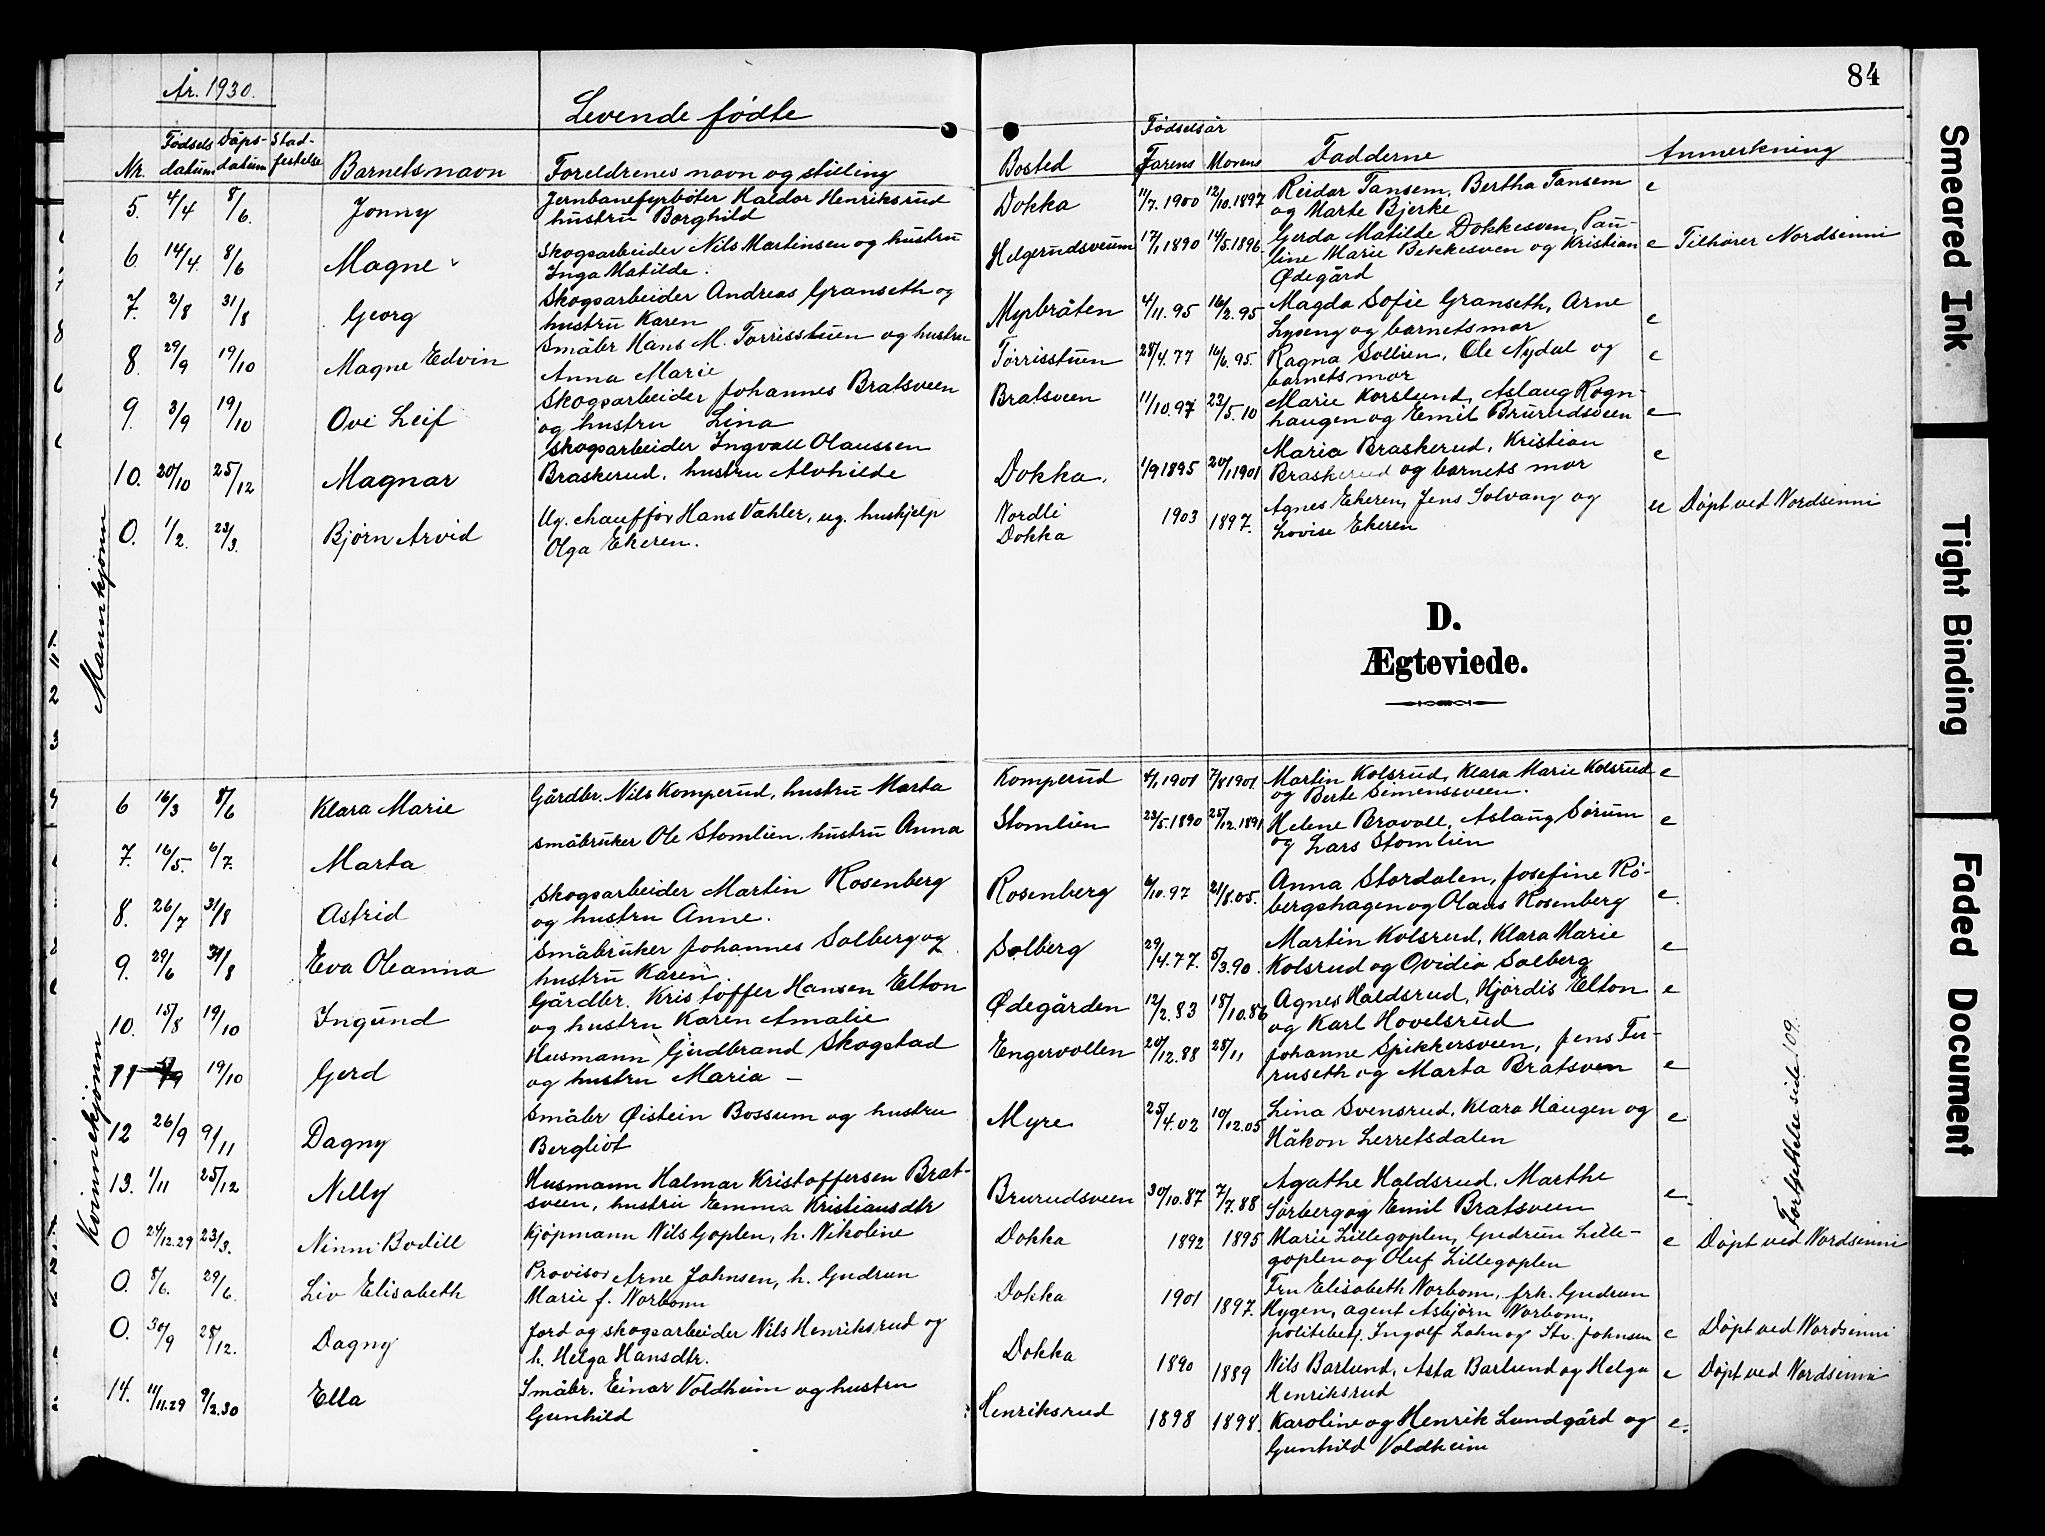 84
År. 1930.
Levende fødte
Nr. Fødsels datum Dåps- datum Stad- festelse Barnets navn Foreldrenes navn og stilling Bosted Fødselsår Farens Morens Fadderne Anmerkning
Mannkjønn
5. 4/4 8/6. Jonny Jernbanefyrbøter Haldor Henriksrud Dokka 11/7.1900 12/10.1897 Reidar Tansem, Bertha Tansem e
hustru Borghild og Marte Bjerke
6. 14/4. 8/6 Magne Skogsarbeider Nils Martinsen og hustru Helgerudsveum 17/1 1890 14/5.1896 Gerda Matilde Dokkesven, Pau- e Tilhører Nordsinni
Inga Matilde. line Marie Bekkesven og Kristian
Ødegård
7. 2/8 31/8 Georg Skogsarbeider Andreas Granseth og Myrbråten 4/11.95 16/2.95 Magda Sofie Granseth, Arne e
hustru Karen Lyseng og barnets mor
8. 29/9 19/10 Magne Edvin Småbr Hans M. Torrisstuen og hustru Torrisstuen 28/4.77 16/6.95. Ragna Sollien, Ole Nydal og e
Anna Marie barnets mor
9. 3/9 19/10 Ove Leif Skogsarbeider Johannes Bratsveen Bratsveen 11/10.97 23/5.10 Marie Korslund, Aslaug Rogn- e
og hustru Lina haugen og Emil Brurudsveen
10. 20/10 25/12 Magnar Skogsarbeider Ingvall Olaussen Dokka. 1/9 1895 20/1 1901 Maria Braskerud, Kristian e
Braskerud, hustru Alvhilde Braskerud og barnets mor
0. 1/2. 23/3. Bjørn Arvid Ug. chauffør Hans Vahler, ug. huskjelp Nordli 1903 1897. Agnes Ekeren, Jens Solvang og u Døpt ved Nordsinni
Olga Ekeren. Dokka Lovise Ekeren
D.
Ægteviede.
Kvinnekjønn
6 16/3 8/6 Klara Marie Gårdbr. Nils Komperud, hustru Marta Komperud 4/1 1901 7/8 1901 Martin Kolsrud, Klara Marie Kolsrud e
og Berte Simenssveen.
7. 16/5. 6/7. Marta småbruker Ole Stomlien, hustru Anna Stomlien 23/5.1890 25/12.1891 Helene Bravoll, Aslaug Sørum e
og Lars Stomlien
8. 26/7 31/8 Astrid Skogsarbeider Martin Rosenberg Rosenberg 4/10.97 21/8.05. Anna Stordalen, Josefine Rø- e
og hustru Anne. bergshagen og Olaus Rosenberg
9. 29/6 31/8 Eva Oleanna Småbruker Johannes Solberg og Solberg 29/4.77. 5/3.90. Martin Kolsrud, Klara Marie e
hustru Karen. Kolsrud og Ovidia Solberg
10. 15/8 19/10 Ingund Gårdbr. Kristoffer Hansen Elton Ødegården 12/2.83 18/10.86 Agnes Haldsrud, Hjørdis Elton e
og hustru Karen Amalie og Karl Hovelsrud
11 19/10 Gerd Husmann Gudbrand Skogstad Engervollen 20/12.88 28/11 Johanne Spikkersveen, Jens Fu- e
og hustru Maria — ruseth og Marta Bratsven
12 26/9 9/11 Dagny Småbr Øistein Bossum og hustru Myre 25/4.02 10/12.05 Lina Svensrud, Klara Haugen og e
Bergliot Håkon Lerretsdalen
13. 1/11 25/12 Nelly Husmann Halmar Kristoffersen Brat- Brurudsveen 30/10.87 7/7.88 Agathe Haldsrud, Marthe e
sveen, hustru Emma Kristiansdtr Sørberg og Emil Bratsveen
0 24/12.29 23/3. Ninni Bodill Kjøpmann Nils Goplen, h. Nikoline Dokka 1892 1895 Marie Lillegoplen, Gudrun Lille- e Døpt ved Nordsinni
goplen og Oluf Lillegoplen
0. 8/6. 29/6. Liv Elisabeth Provisor Arne Johnsen, h. Gudrun Dokka 1901 1897. Fru Elisabeth Norbom, frk. Gudrun
Marie f. Norbom Hygen, agent Asbjørn Norbom,
politibetj. Ingolf Lahn og Stv. Johnsen e Døpt ved Nordsinni
0. 30/9 28/12. Dagny Jord og skogsarbeider Nils Henriksrud og Dokka 1890 1889 Nils Barlund, Asta Barlund og Helga e Døpt ved Nordsinni
h. Helga Hansdtr. Henriksrud
14. 11/11.29 9/2.30 Ella Småbr. Einar Voldheim og hustru Henriksrud 1898 1898. Karoline og Henrik Lundgård og e.
Gunhild Gunhild Voldheim
Fortsettelse side 109.
Smeared Ink
Tight Binding
Faded Document